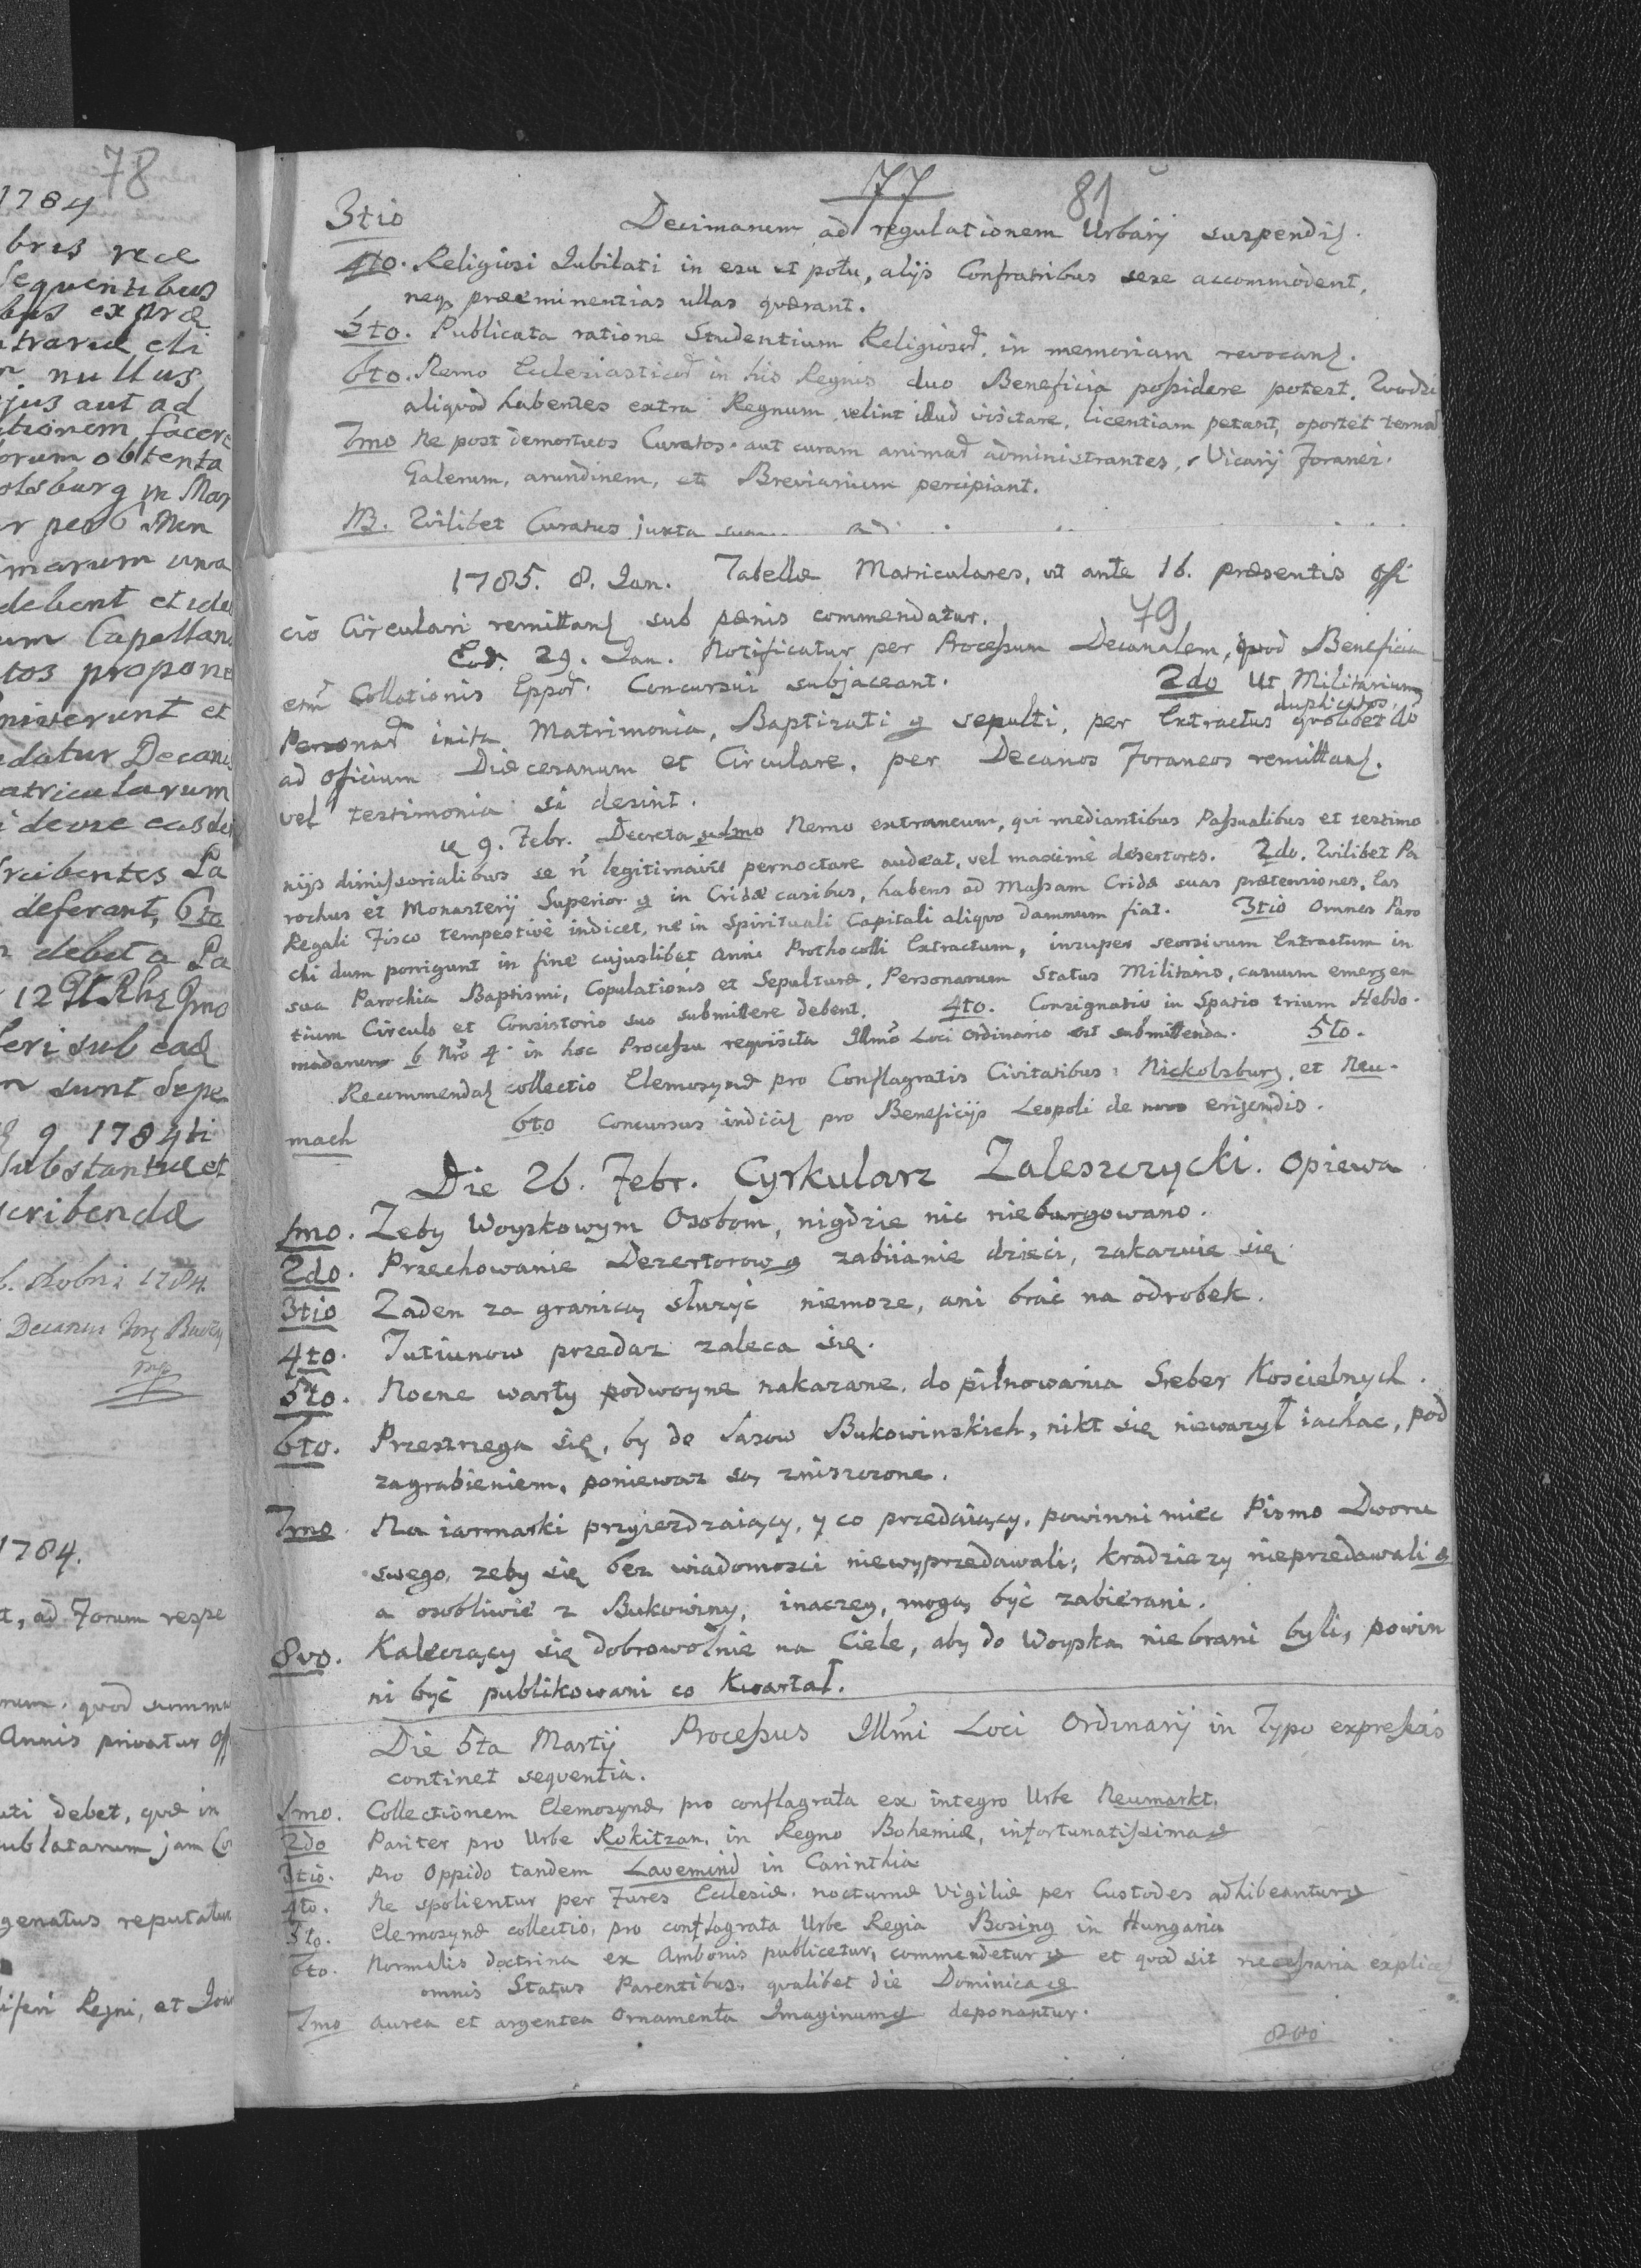 78
1784
bris rece
sequentibus
bus ex præ
ntrariæ eli
nullus
jus aut ad
ationem facere
orum obtenta
olsburg in Mar
r per 6 Men
marum una
debent et ide
um Capellan
tos propone
niverunt et
datur Decani
atricularum
devre easde
cribentes Pa
deferant, 6to
debet a Pa
12 Rh 7mo
leri sub ead
n sunt Sepe
9 1784ti
substantiæ et
scribendæ
1784
Decanus
mp
1784.
t, ad Forum respe
rum. quod summa
Annis privatur Off
uti debet, quæ in
ublatarum jam Co
genatus reputatur
liferi Regni, et Joan
77 81
3tio Decimarum ad regulationem Urbarÿ suspendit.
4to. Religiosi Jubilati in esu et potu, alÿs Confratribus sese accommodent,
neq præeminentias ullas quærant.
5to. Publicata ratione Studentium Religiosor, in memoriam revocant.
6to. Nemo Ecclesiasticor in his Regnis duo Beneficia possidere potest. Quodsi
aliquod habentes extra Regnum velint illud visitare, licentiam petant, oportet
7mo Ne post demortuos Curatos aut curam animar administrantes, Vicarÿ Foranei.
Galerum, arundinem, et Breviarium percipiant.
NB. Quilibet Curatus juxta
1785. 8. Jan. Tabellæ Matriculares, ut ante 16. præsentis offi
cio Circulari remittant sub pænis commendatur.
79
Eod. 29. Jan. Notificatur per Processum Decanalem, quod Beneficia
etm Collationis Eppor. Concursui subjaceant. 2do Ut Militarium
Personar inita Matrimonia, Baptizati & sepulti, per Extractus duplicatos, quolibet
ad oficium Diæcesanum et Circulare, per Decanos Foraneos remittant.
vel testimonia si desint.
9. Febr. Decreta 1mo Nemo extraneum, qui mediantibus Passualibus et testimo
nÿs dimissorialibus se n legitimavit pernoctare audeat, vel maximè desertores. 2do. Quilibet Pa
rochus et Monasterÿ Superior & in Cridæ casibus, habens ad Massam Cridæ suas prætensiones, Eas
Regali Fisco tempestivè indicet, ne in Spirituali Capitali aliquo damnum fiat. 3tio Omnes Paro
chi dum porrigunt in fine cujuslibet anni Prothocolli Extractum, insuper seorsivum Extractum in
sua Parochia Baptismi, Copulationis et Sepulturæ, Personarum Status Militaris, casuum emergen
tium Circulo et Consistorio suo submittere debent. 4to. Consignatio in Spatio trium Hebdo-
madarum 6 Nro 4 in hoc Processu requisita Illmo Loci Ordinario est submittenda. 5to.
Recommendat collectio Elemosynæ pro Conflagratis Civitatibus: Nickolsburg, et Neu-
mach 6to Concursus indicit pro Beneficÿs Leopoli de novo erigendis.
Die 26. Febr. Cyrkularz Zaleszczycki. Opiewa
1mo. Zeby Woyskowym Osobom, nigdzie nic nieborgowano.
2do. Przechowanie Dezertorow & zabiianie dzieci, zakazuie się
3tio Zaden za granicą słuzyć niemoze, ani brać na odrobek.
4to. Tutiunow przedaz zaleca się.
5to. Nocne warty podwoyne nakazane, do pilnowania Sreber Koscielnych.
6to. Przestrzega się, by do Lasow Bukowinskich, nikt się niewazył iachac, pod
zagrabieniem, poniewaz są zniszczone.
7mo Na iarmarki przyiezdzaiący, y co przedaiący, powinni miec Pismo Dworu
swego, zeby się bez wiadomosci niewyprzedawali, kradziezy nieprzedawali &
a osobliwie z Bukowiny, inaczey, mogą być zabierani.
8vo. Kaleczący się dobrowolnie na Ciele, aby do Woyska niebrani byli, powin
ni być publikowani co Kwartał.
Die 5ta Martÿ Processus Illmi Loci Ordinarÿ in Typo expressis
continet sequentia.
1mo. Collectionem Elemosynæ pro conflagrata ex integro Urbe Neumarkt.
2do Pariter pro Urbe Rokitzan, in Regno Bohemiæ, infortunatissima &
3tio. Pro Oppido tandem Lavemind in Carinthia
4to. Ne spolientur per Fures Ecclesiæ, nocturnæ Vigiliæ per Custodes adhibeantur &
5to. Elemosynæ collectio, pro conflagrata Urbe Regia Bosing in Hungaria
6to. Normalis doctrina ex Ambonis publicetur, commendetur & et quod sit necessaria explicet
omnis Status Parentibus, qualibet die Dominica &
7mo Aurea et argentea Ornamenta Imaginum & deponantur.
8vo